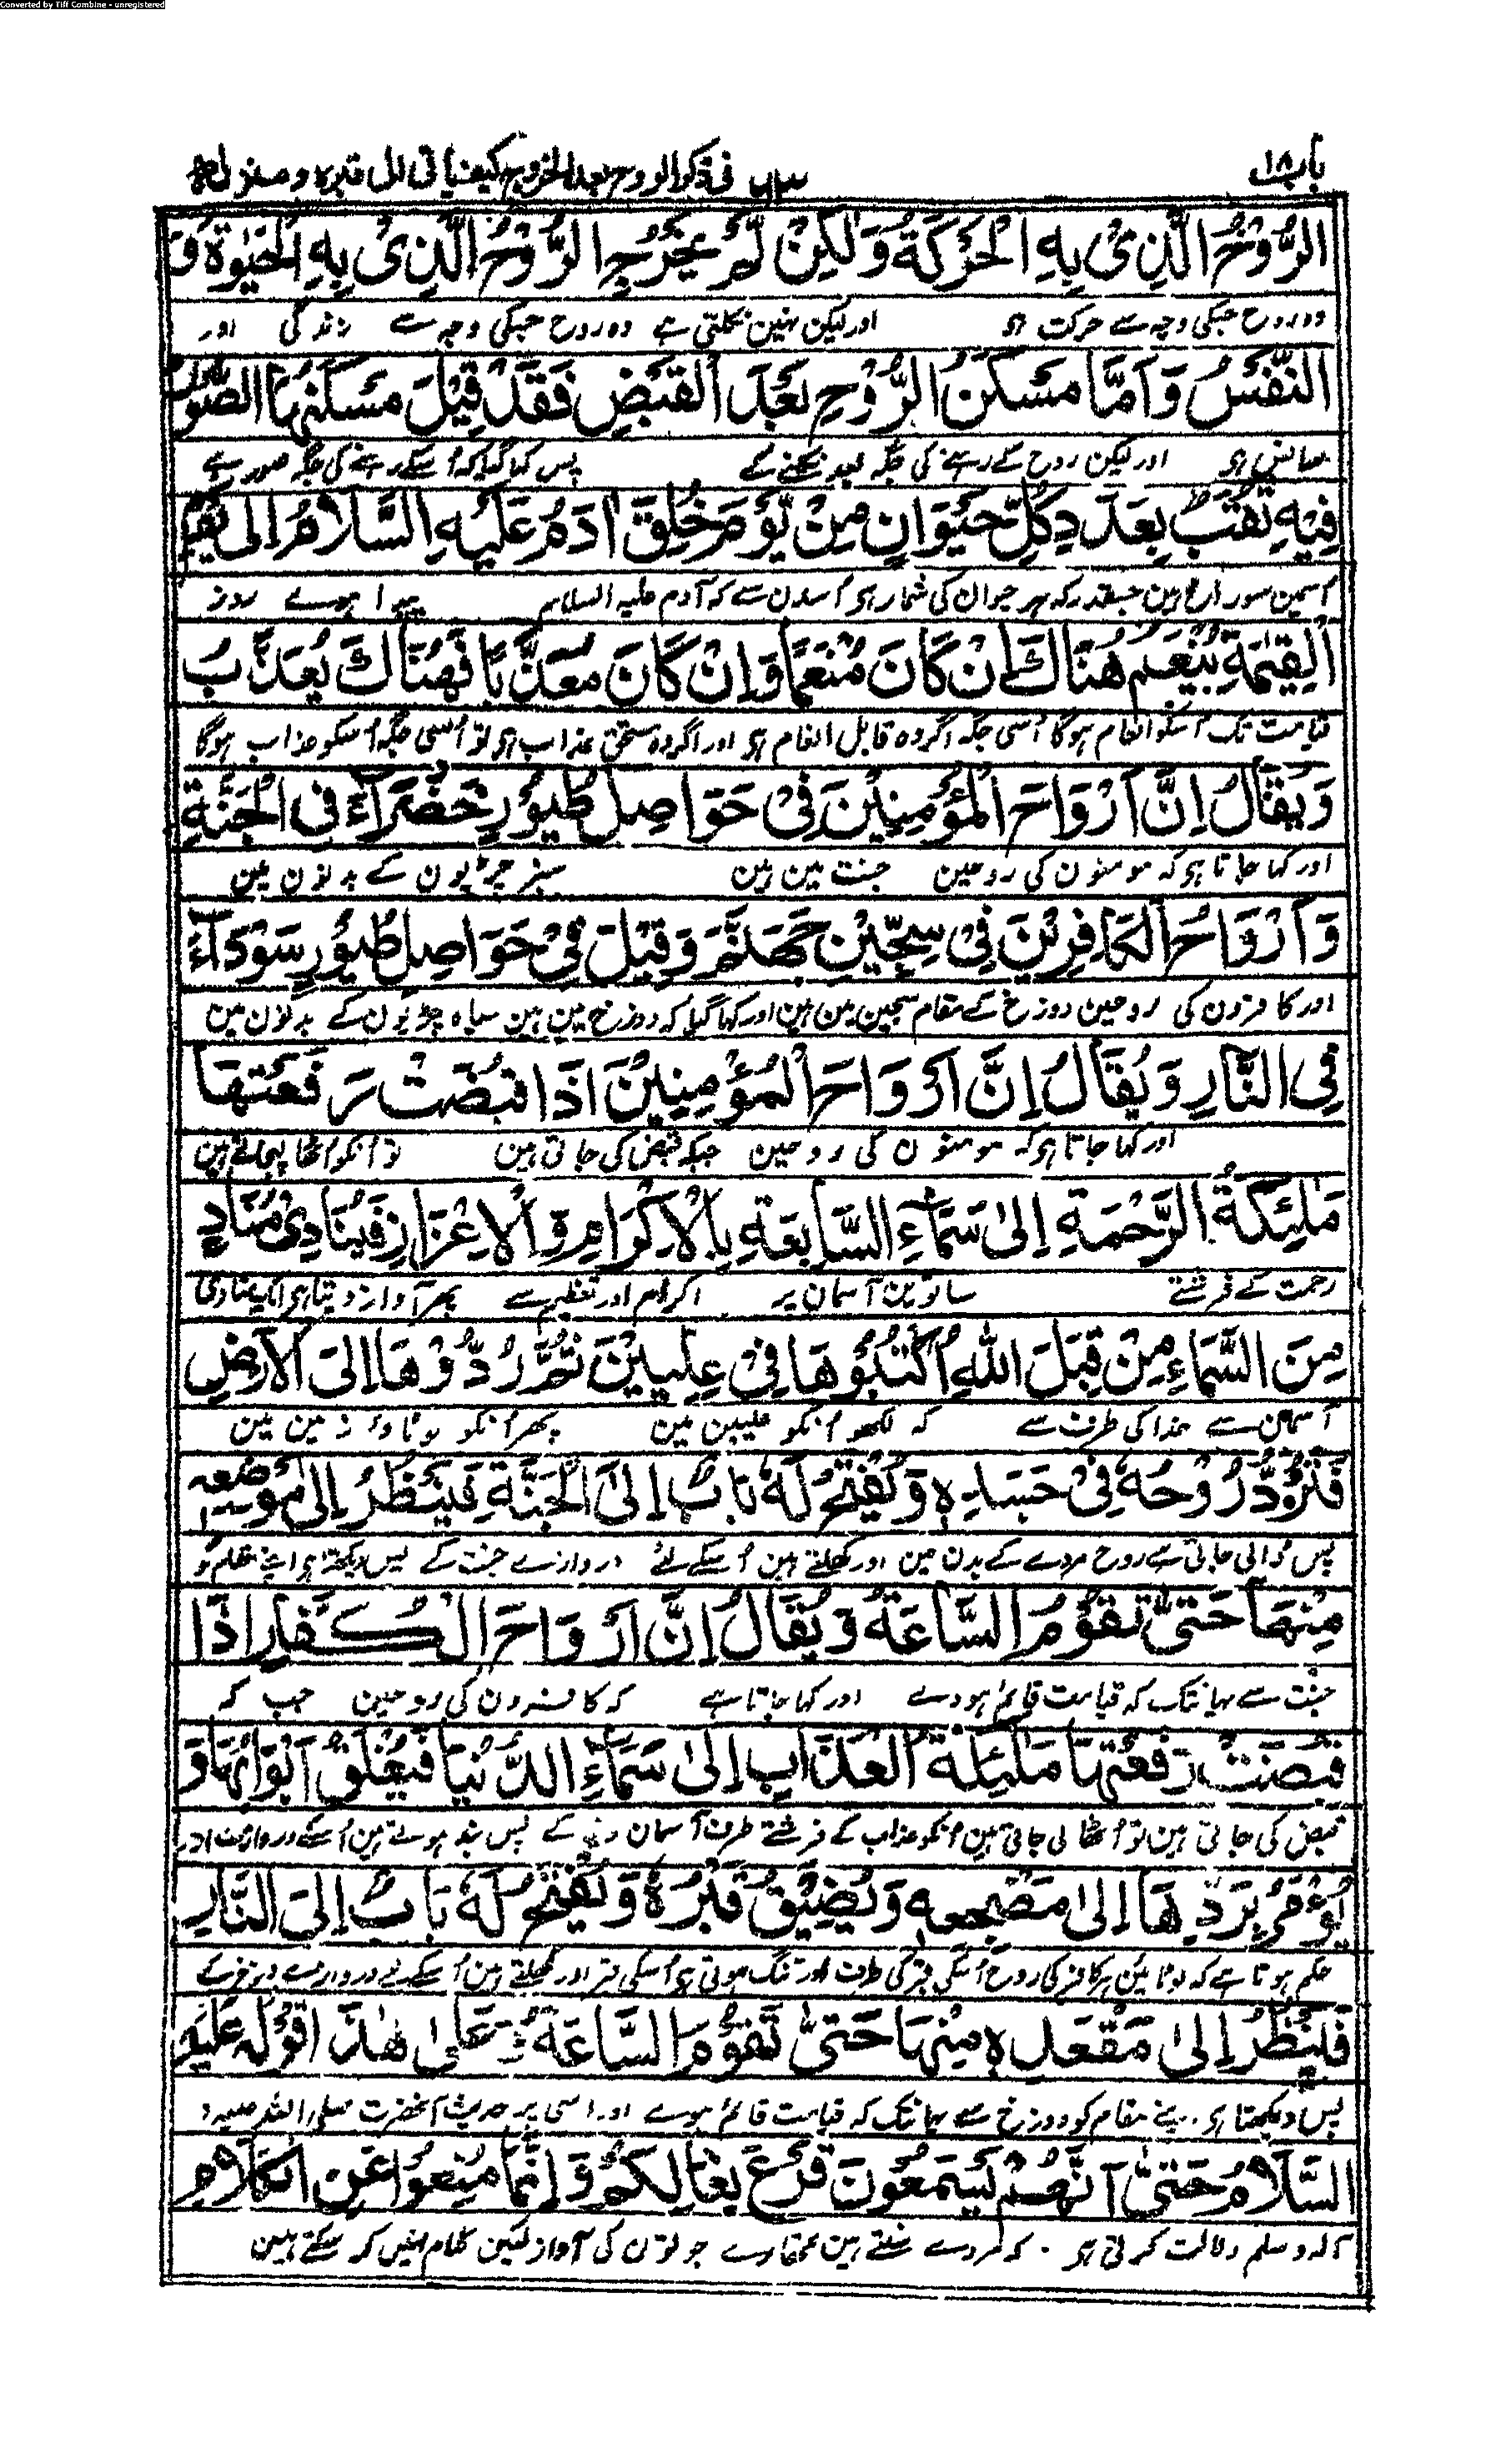 Converted by Tiff Combine - unregistered
باب ۱۸ ۴۳ فی ذکر الروح بعد الخروج کیف یأتی الی قبرہ و منزلہ
الرُّوْحُ الَّذِیْ بِهِ الْحَرَكَةُ وَلٰكِنْ لَّمْ يَخْرُجِ الرُّوْحُ الَّذِیْ بِهِ الْحَيٰوةُ وَ
وہ روح جسکی وجہ سے حرکت ہی اور لیکن نہین نکلتی ہے وہ روح جسکی وجہ سے زندگی اور
النَّفَسُ وَاَمَّا مَسْكَنُ الرُّوْحِ بَعْدَ الْقَبْضِ فَقَدْ قِيْلَ مَسْكَنُهَا الصُّوْرُ
سانس ہی اور لیکن روح کے رہنے کی جگہ بعد نکلنے کے پس کہا گیا کہ اُسکے رہنے کی جگہ صور ہے
فِيْهِ ثُقَبٌ بِعَدَدِ كُلِّ حَيْوَانٍ مِنْ يَّوْمَ خُلِقَ اٰدَمُ عَلَيْهِ السَّلَامُ اِلٰى يَوْمِ
اُسمین سوراخ ہین جسقدر کہ ہر حیوان کی شمار ہی اُسدن سے کہ آدم علیہ السلام پیدا ہوے روز
الْقِيٰمَةِ يُنْعَمُ هُنَاكَ اِنْ كَانَ مُنْعَمًا وَاِنْ كَانَ مُعَذَّبًا فَهُنَاكَ يُعَذَّبُ
قیامت تک اُسکو انعام ہوگا اُسی جگہ اگر وہ قابل انعام ہی اور اگر وہ مستحق عذاب ہی تو اُسی جگہ اُسکو عذاب ہوگا
وَيُقَالُ اِنَّ اَرْوَاحَ الْمُؤْمِنِيْنَ فِیْ حَوَاصِلِ طُيُوْرٍ خَضْرَآءَ فِی الْجَنَّةِ
اور کہا جاتا ہی کہ مومنون کی روحین جنت مین ہین سبز چڑیون کے بدنون مین
وَاَرْوَاحُ الْكَافِرِيْنَ فِیْ سِجِّيْنِ جَهَنَّمَ وَقِيْلَ فِیْ حَوَاصِلِ طُيُوْرٍ سَوْدَآءَ
اور کافرون کی روحین دوزخ کے مقام سجین مین ہین اور کہا گیا کہ دوزخ مین ہین سیاہ چڑیون کے بدنون مین
فِی النَّارِ وَيُقَالُ اِنَّ اَرْوَاحَ الْمُؤْمِنِيْنَ اِذَا قُبِضَتْ رَفَعَتْهَا
اور کہا جاتا ہی کہ مومنون کی روحین جبکہ قبض کی جاتی ہین تو اُنکو اُٹھا لیجاتے ہین
مَلٰئِكَةُ الرَّحْمَةِ اِلٰى سَمَآءِ السَّابِعَةِ بِالْاِكْرَامِ وَالْاِعْزَازِ فَيُنَادِیْ مُنَادٍ
رحمت کے فرشتے ساتوین آسمان پر اکرام اور تعظیم سے پھر آواز دیتا ہی ایک منادی
مِنَ السَّمَآءِ مِنْ قِبَلِ اللّٰهِ اُكْتُبُوْهَا فِیْ عِلِّيِّيْنَ ثُمَّ رُدُّوْهَا اِلَى الْاَرْضِ
آسمان سے خدا کی طرف سے کہ لکھو اُنکو علیین مین پھر اُنکو لوٹا دو زمین مین
فَتُرَدُّ رُوْحُهٗ فِیْ جَسَدِهٖ وَيُفْتَحُ لَهٗ بَابٌ اِلَى الْجَنَّةِ فَيَنْظُرُ اِلٰى مَوْضِعِهٖ
پس ڈالی جاتی ہے روح مردے کے بدن مین اور کھلتے ہین اُسکے لئے دروازے جنت کے پس دیکھتا ہی اپنے مقام کو
مِنْهَا حَتّٰى تَقُوْمَ السَّاعَةُ وَيُقَالُ اِنَّ اَرْوَاحَ الْكُفَّارِ اِذَا
جنت سے یہانتک کہ قیامت قائم ہووے اور کہا جاتا ہے کہ کافرون کی روحین جب کہ
قُبِضَتْ رَفَعَتْهَا مَلٰئِكَةُ الْعَذَابِ اِلٰى سَمَآءِ الدُّنْيَا فَيُغْلَقُ اَبْوَابُهَا وَ
قبض کی جاتی ہین تو اُٹھا لی جاتی ہین اُنکو عذاب کے فرشتے طرف آسمان دنیا کے پس بند ہوتے ہین اُسکے دروازے اور
يُؤْمَرُ بِرَدِّهَا اِلٰى مَضْجَعِهٖ وَيُضَيَّقُ قَبْرُهٗ وَيُفْتَحُ لَهٗ بَابٌ اِلَى النَّارِ
حکم ہوتا ہے کہ لوٹائین ہر کافر کی روح اُسکی قبر کی طرف اور تنگ ہوتی ہی اُسکی قبر اور کھلتے ہین اُسکے لیے دروازے دوزخ کے
فَيَنْظُرُ اِلٰى مَقْعَدِهٖ مِنْهَا حَتّٰى تَقُوْمَ السَّاعَةُ وَعَلٰى هٰذَا قَوْلُهٗ عَلَيْهِ
پس دیکھتا ہی اپنے مقام کو دوزخ سے یہانتک کہ قیامت قائم ہوے اور اسی پر حدیث آنحضرت صلی اللہ علیہ و
السَّلَامُ حَتّٰى اَنَّهُمْ لَيَسْمَعُوْنَ قَرْعَ نِعَالِكُمْ وَاِنَّمَا مُنِعُوْا عَنِ الْكَلَامِ
آلہ وسلم دلالت کرتی ہی . کہ مردے سنتے ہین تمھارے جوتون کی آواز لیکن کلام نہین کر سکتے ہین